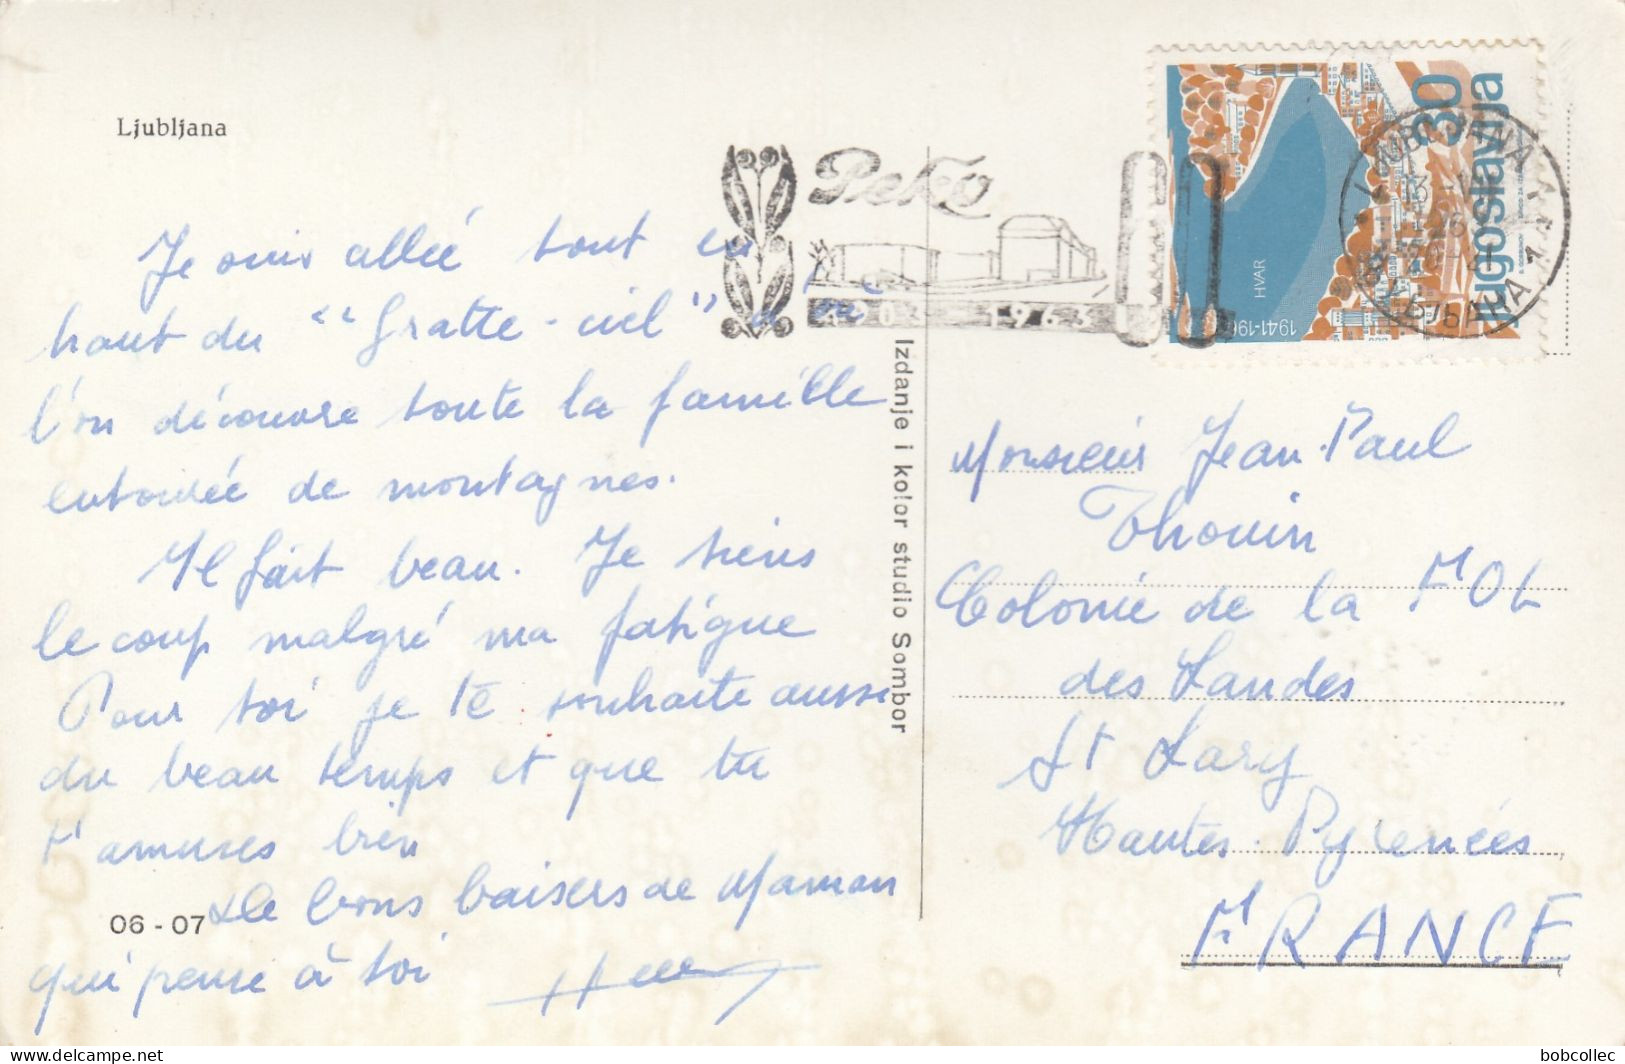 Ljubljana
Je suis allée tout en
haut du "Gratte-ciel" d'où
l'on découvre toute la famille
entourée de montagnes.
Il fait beau. Je tiens
le coup malgré ma fatigue
Pour toi je te souhaite aussi
du beau temps et que tu
t'amuses bien
De bons baisers de Maman
qui pense à toi
06 - 07
Izdanje i kolor studio Sombor
Peko
1903 1963
30
Jugoslavija
HVAR
1941-196
LJUBLJANA
Monsieur Jean-Paul
Thouin
Colonie de la FOL
des Landes
St Lary
Hautes-Pyrenées
FRANCE
delcampe.net
bobcollec